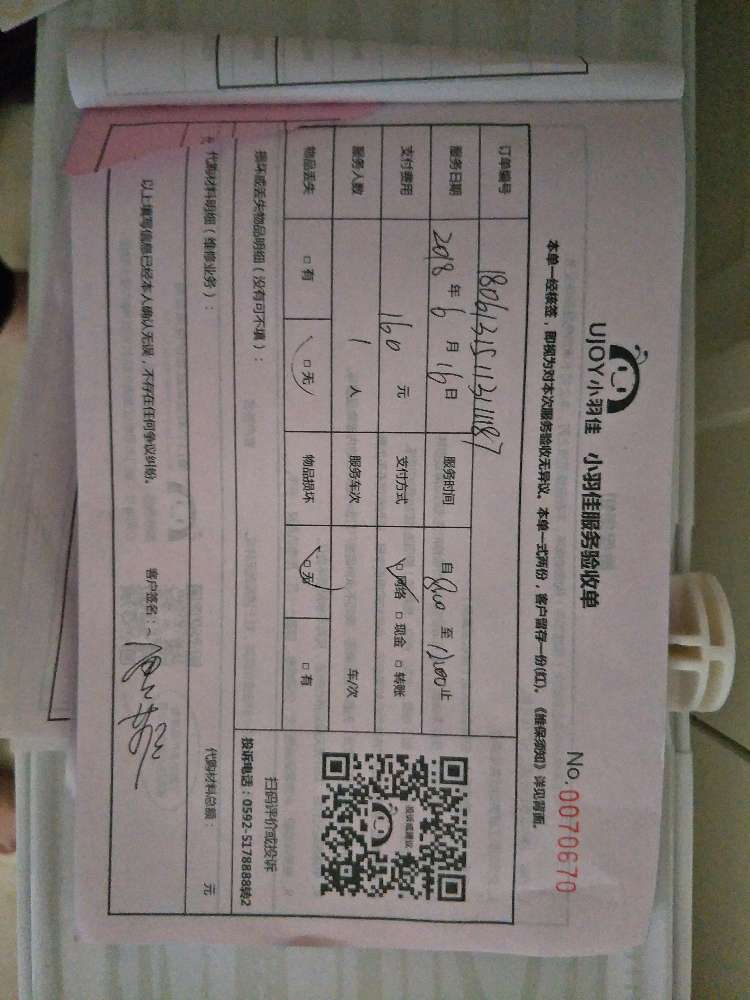 UJOY小羽佳 小羽佳服务验收单
No. 0070670
本单一经核签，即视为对本次服务验收无异议。本单一式两份，客户留存一份(红)。《维保须知》详见背面。
订单编号
服务日期 2018 年 6 月 16 日 服务时间 自 8:00 至 12:00 止
支付费用 160 元 支付方式 □ 网络 □ 现金 □ 转账
服务人数 1 人 服务车次 车/次
物品丢失 □ 有 □ 无 物品损坏 □ 无 □ 有
投诉或建议
扫码评价或投诉
投诉电话：0592-5178888转2
损坏或丢失物品明细（没有可不填）：
代购材料明细（维修业务）： 代购材料总额： 元
以上填写信息已经本人确认无误，不存在任何争议纠纷。 客户签名：